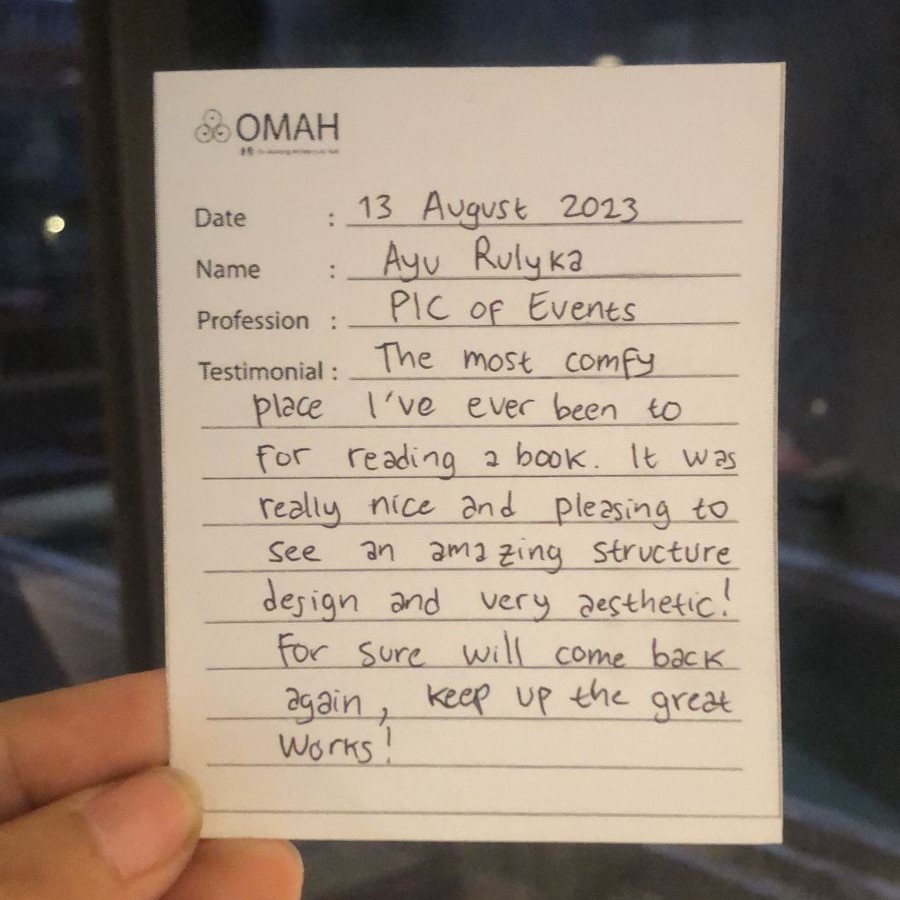 OMAH
Date : 13 August 2023
Name : Ayu Rulyka
Profession : PIC of Events
Testimonial : The most comfy
place I've ever been to
for reading a book. It was
really nice and pleasing to
see an amazing structure
design and very aesthetic!
For sure will come back
again, keep up the great
works!